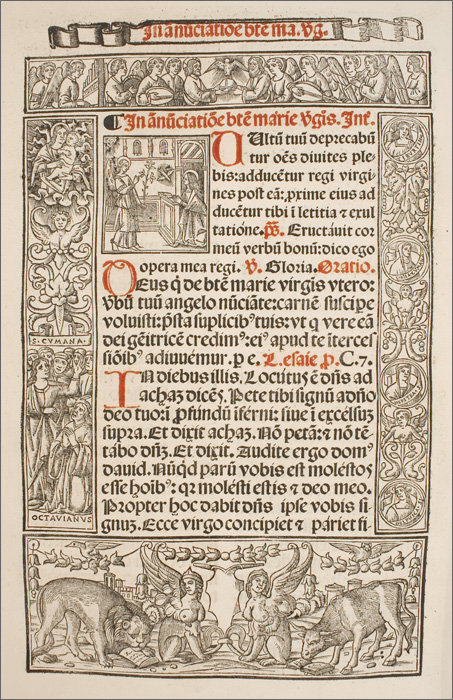 In ānūciatiōe btē ma.vg̃.
¶ In ānūciatiōe btē marie v̄gīs. Int̃.
Ultū tuū deprecabū
tur oēs diuites ple-
bis: adducētur regi virgi-
nes post eā: ꝓxime eius ad
ducētur tibi ī letitia ⁊ exul
tatione. p̄s. Eructauit cor
meū verbū bonū: dico ego
opera mea regi. v̄. Gloria. Oratio.
Deus q̄ de btē marie virgis vtero:
v̄bū tuū angelo nūciāte: carnē suscipe
voluisti: p̄sta suplicibꝰ tuis: vt q vere eā
dei geītricē credimꝰ: eiꝰ apud te īterces
siōibꝰ adiuuemur. p e. L. esaie ꝓ. C. 7.
In diebus illis. Locutus ē dn̄s ad
achaz dicēs. Pete tibi signū a dn̄o
deo tuo: ī ꝓfundū īferni: siue ī excelsuz
supra. Et dixit achaz. Nō petā: ⁊ nō tē-
tabo dn̄z. Et dixit. Audite ergo domꝰ
dauid. Nūqd parū vobis est molestos
esse hoībꝰ: qr molesti estis ⁊ deo meo.
Propter hoc dabit dn̄s ipse vobis si-
gnuz. Ecce virgo concipiet ⁊ pariet fi-
S. CVMANA.
OCTAVIANVS